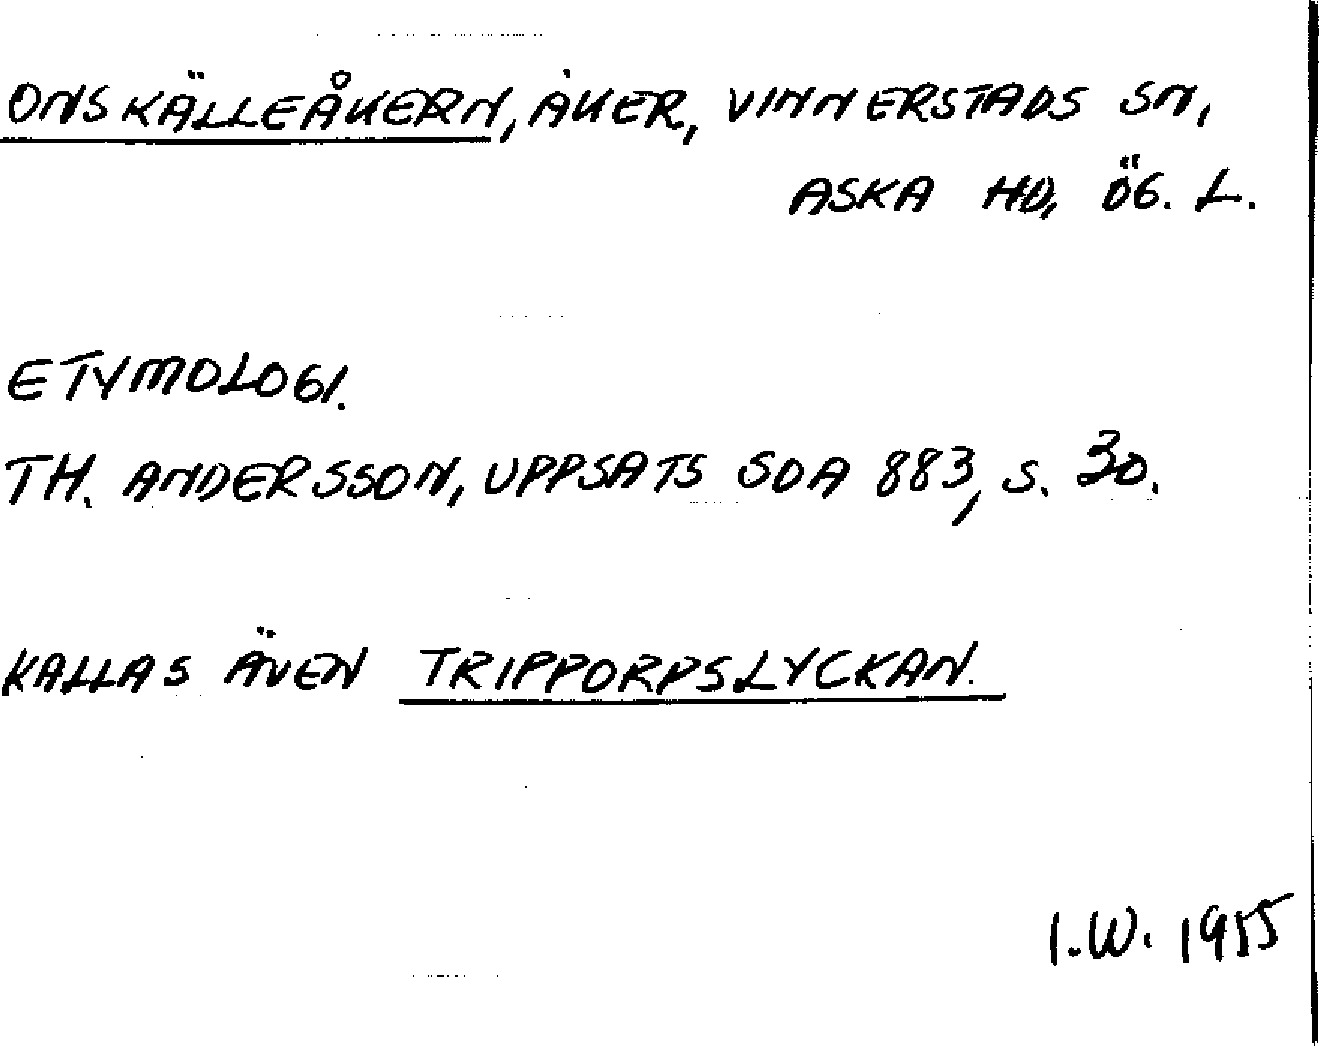 ONSKÄLLEÅKERN, ÅKER, VINNERSTADS SN,
ASKA HD, ÖG. L.
ETYMOLOGI.
TH. ANDERSSON, UPPSATS SOA 883, S. 30.
KALLAS ÄVEN TRIPPORPSLYCKAN.
I.W. 1955